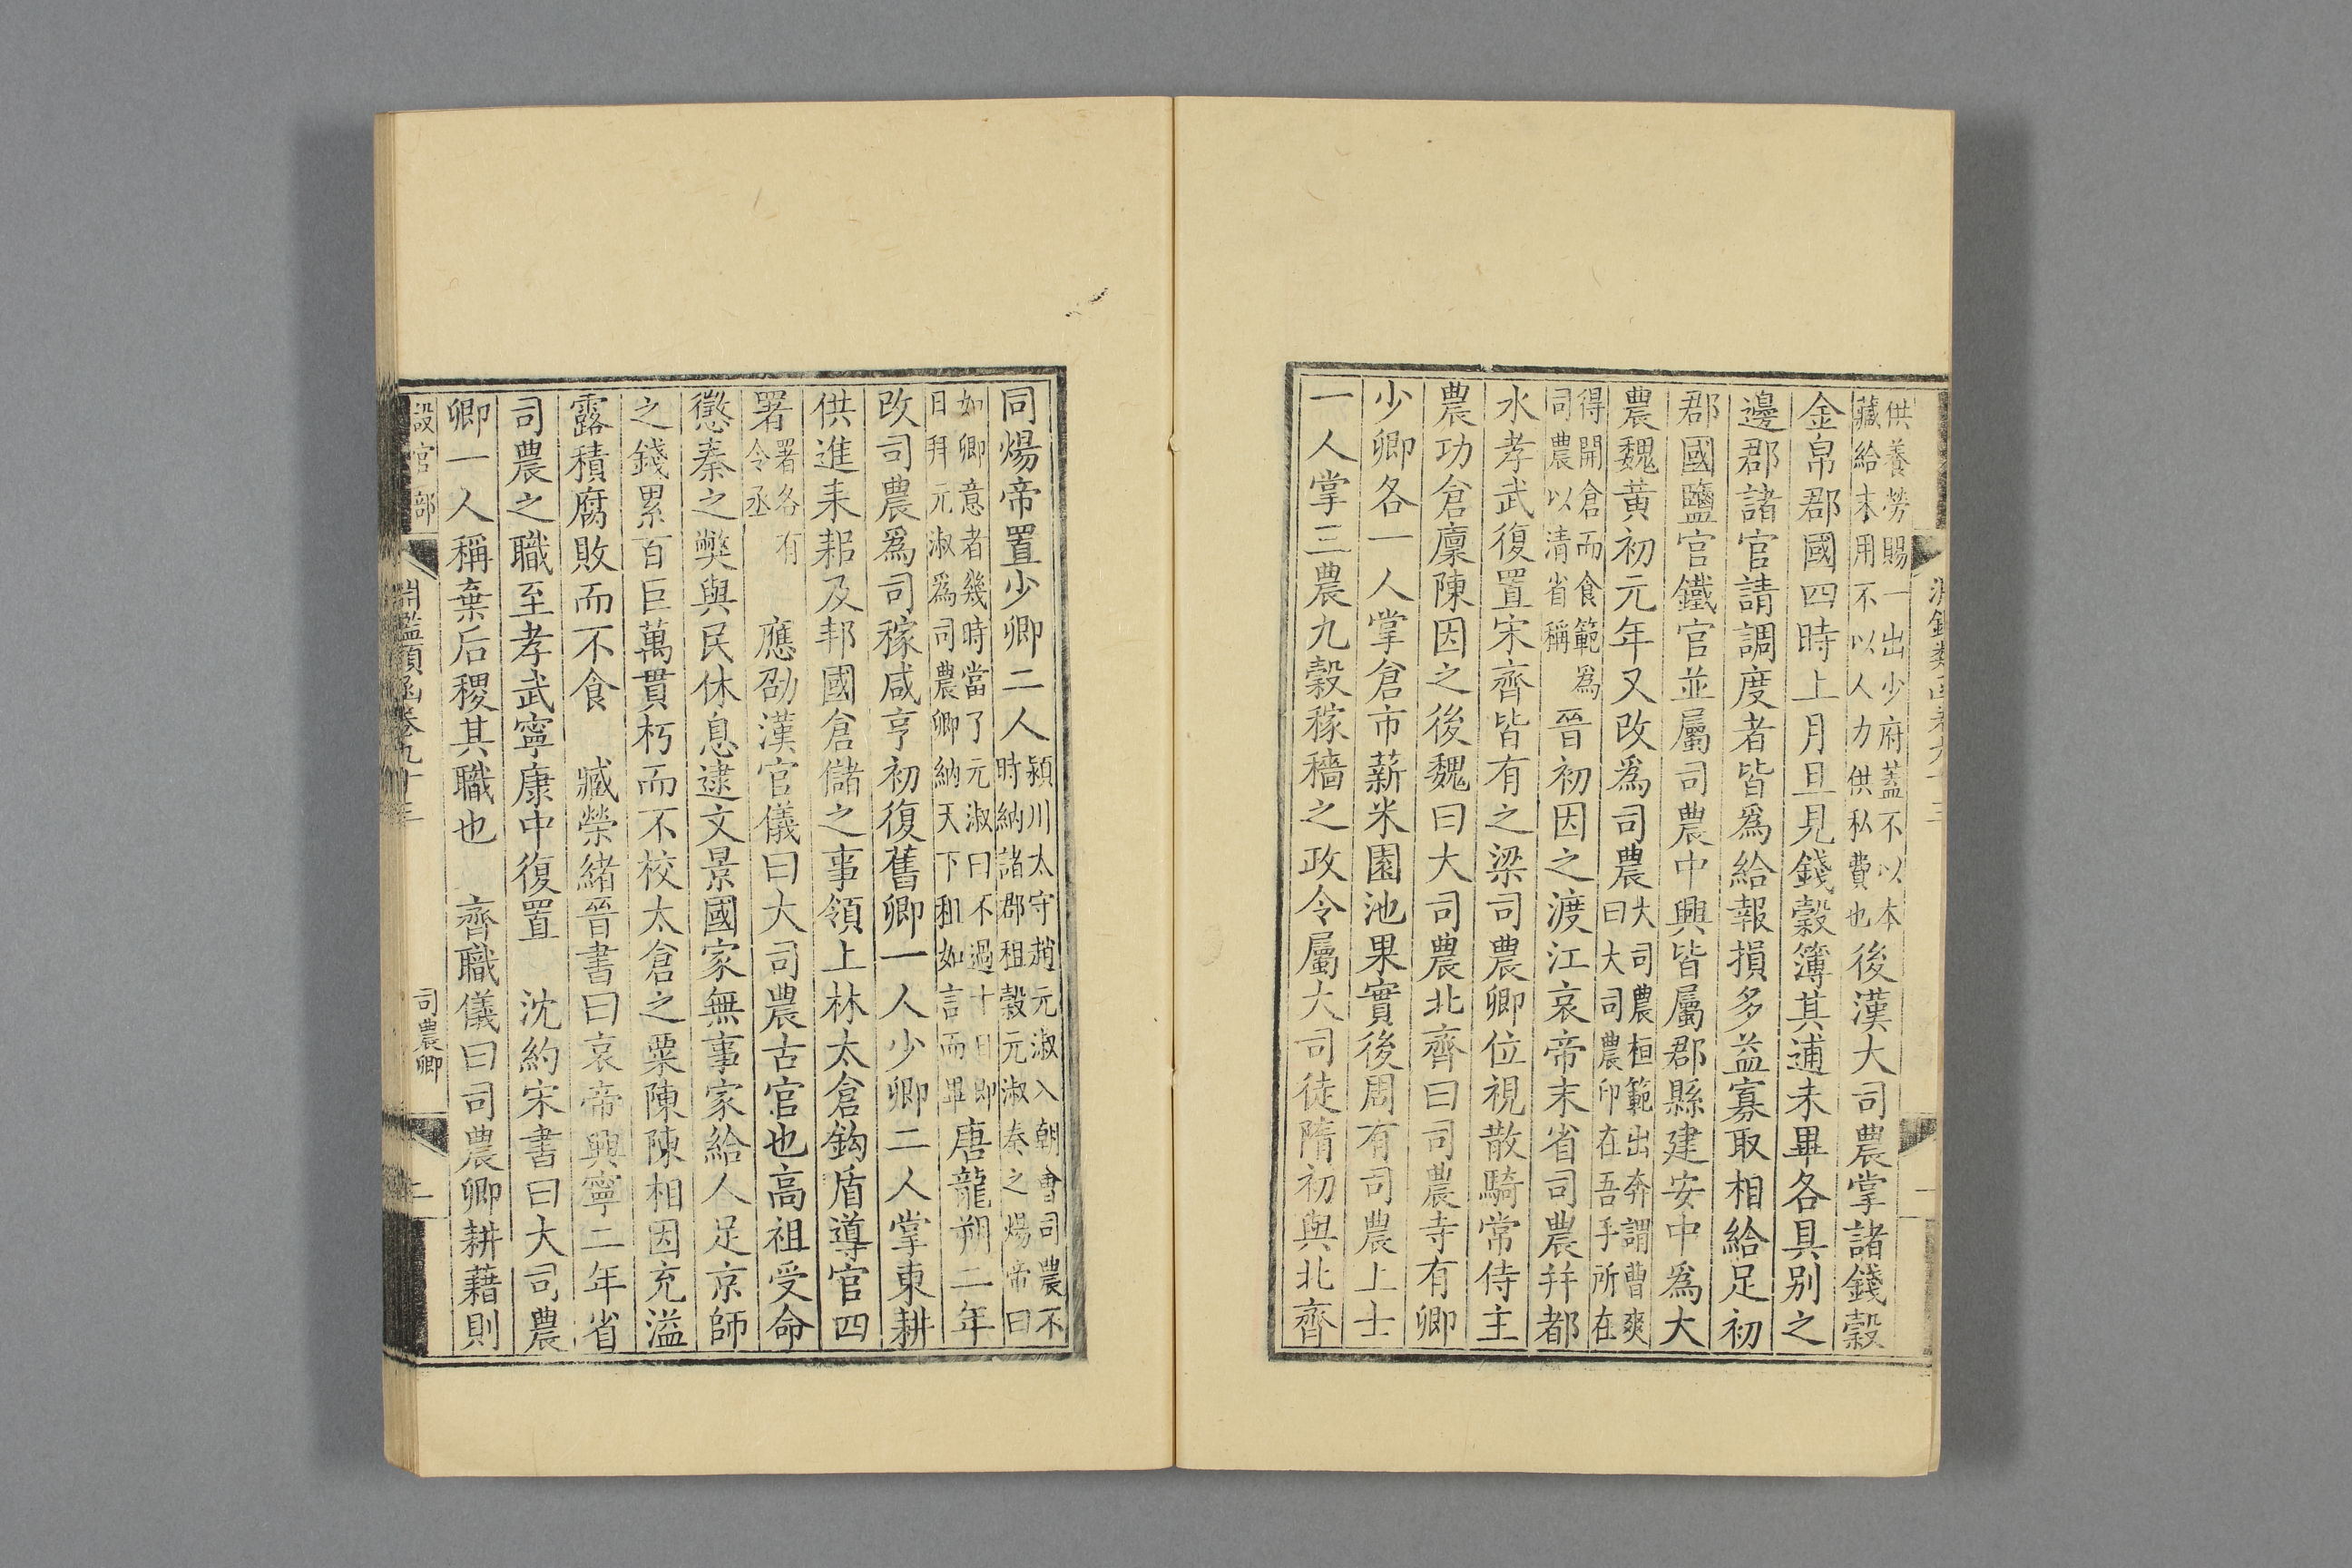 供養勞賜一出少府蓋不以本
藏給末用不以人力供私費也後漢大司農掌諸錢穀
金帛郡國四時上月旦見錢穀簿其逋未畢各具别之
邊郡諸官請調度者皆爲給報損多益寡取相給足初
郡國鹽官鐵官並屬司農中興皆屬郡縣建安中爲大
農魏黃初元年又改爲司農大司農桓範出奔謂曹爽
曰大司農印在吾手所在
得開倉而食範爲
司農以清省稱晉初因之渡江哀帝末省司農并都
水孝武復置宋齊皆有之梁司農卿位視散騎常侍主
農功倉廩陳因之後魏曰大司農北齊曰司農寺有卿
少卿各一人掌倉市薪米園池果實後周有司農上士
一人掌三農九穀稼穡之政令屬大司徒隋初與北齊
同煬帝置少卿二人潁川太守趙元淑入朝會司農不
時納諸郡租穀元淑奏之煬帝曰
如卿意者幾時當了元淑曰不過十日卽
日拜元淑爲司農卿納天下租如言而畢唐龍朔二年
改司農爲司稼咸亨初復舊卿一人少卿二人掌東耕
供進耒耜及邦國倉儲之事領上林太倉鈎盾導官四
署署各有
令丞　應劭漢官儀曰大司農古官也高祖受命
懲秦之弊與民休息逮文景國家無事家給人足京師
之錢累百巨萬貫朽而不校太倉之粟陳陳相因充溢
露積腐敗而不食　臧榮緒晉書曰哀帝興寧二年省
司農之職至孝武寧康中復置　沈約宋書曰大司農
卿一人稱棄后稷其職也　齊職儀曰司農卿耕藉則
設官部
淵鑑類函卷九十三
司農卿
二